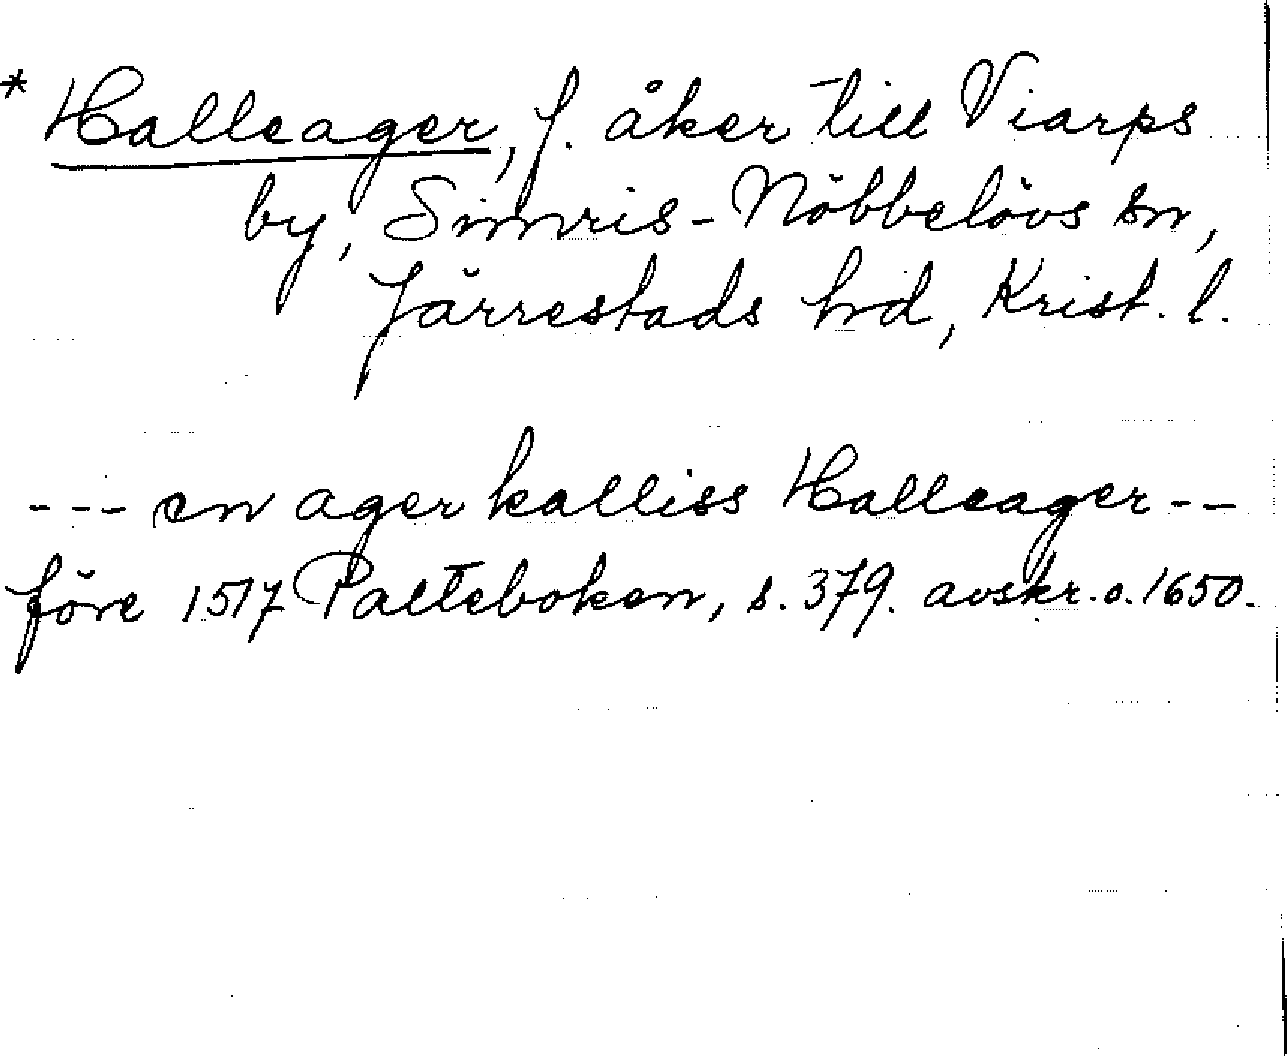 * Halleager, f. åker till Viarps
by, Simris-Nöbbelövs sn,
Järrestads hrd, Krist. l.
--- en ager kalliss Halleager --
före 1517 Palteboken, s. 379. avskr. o. 1650.